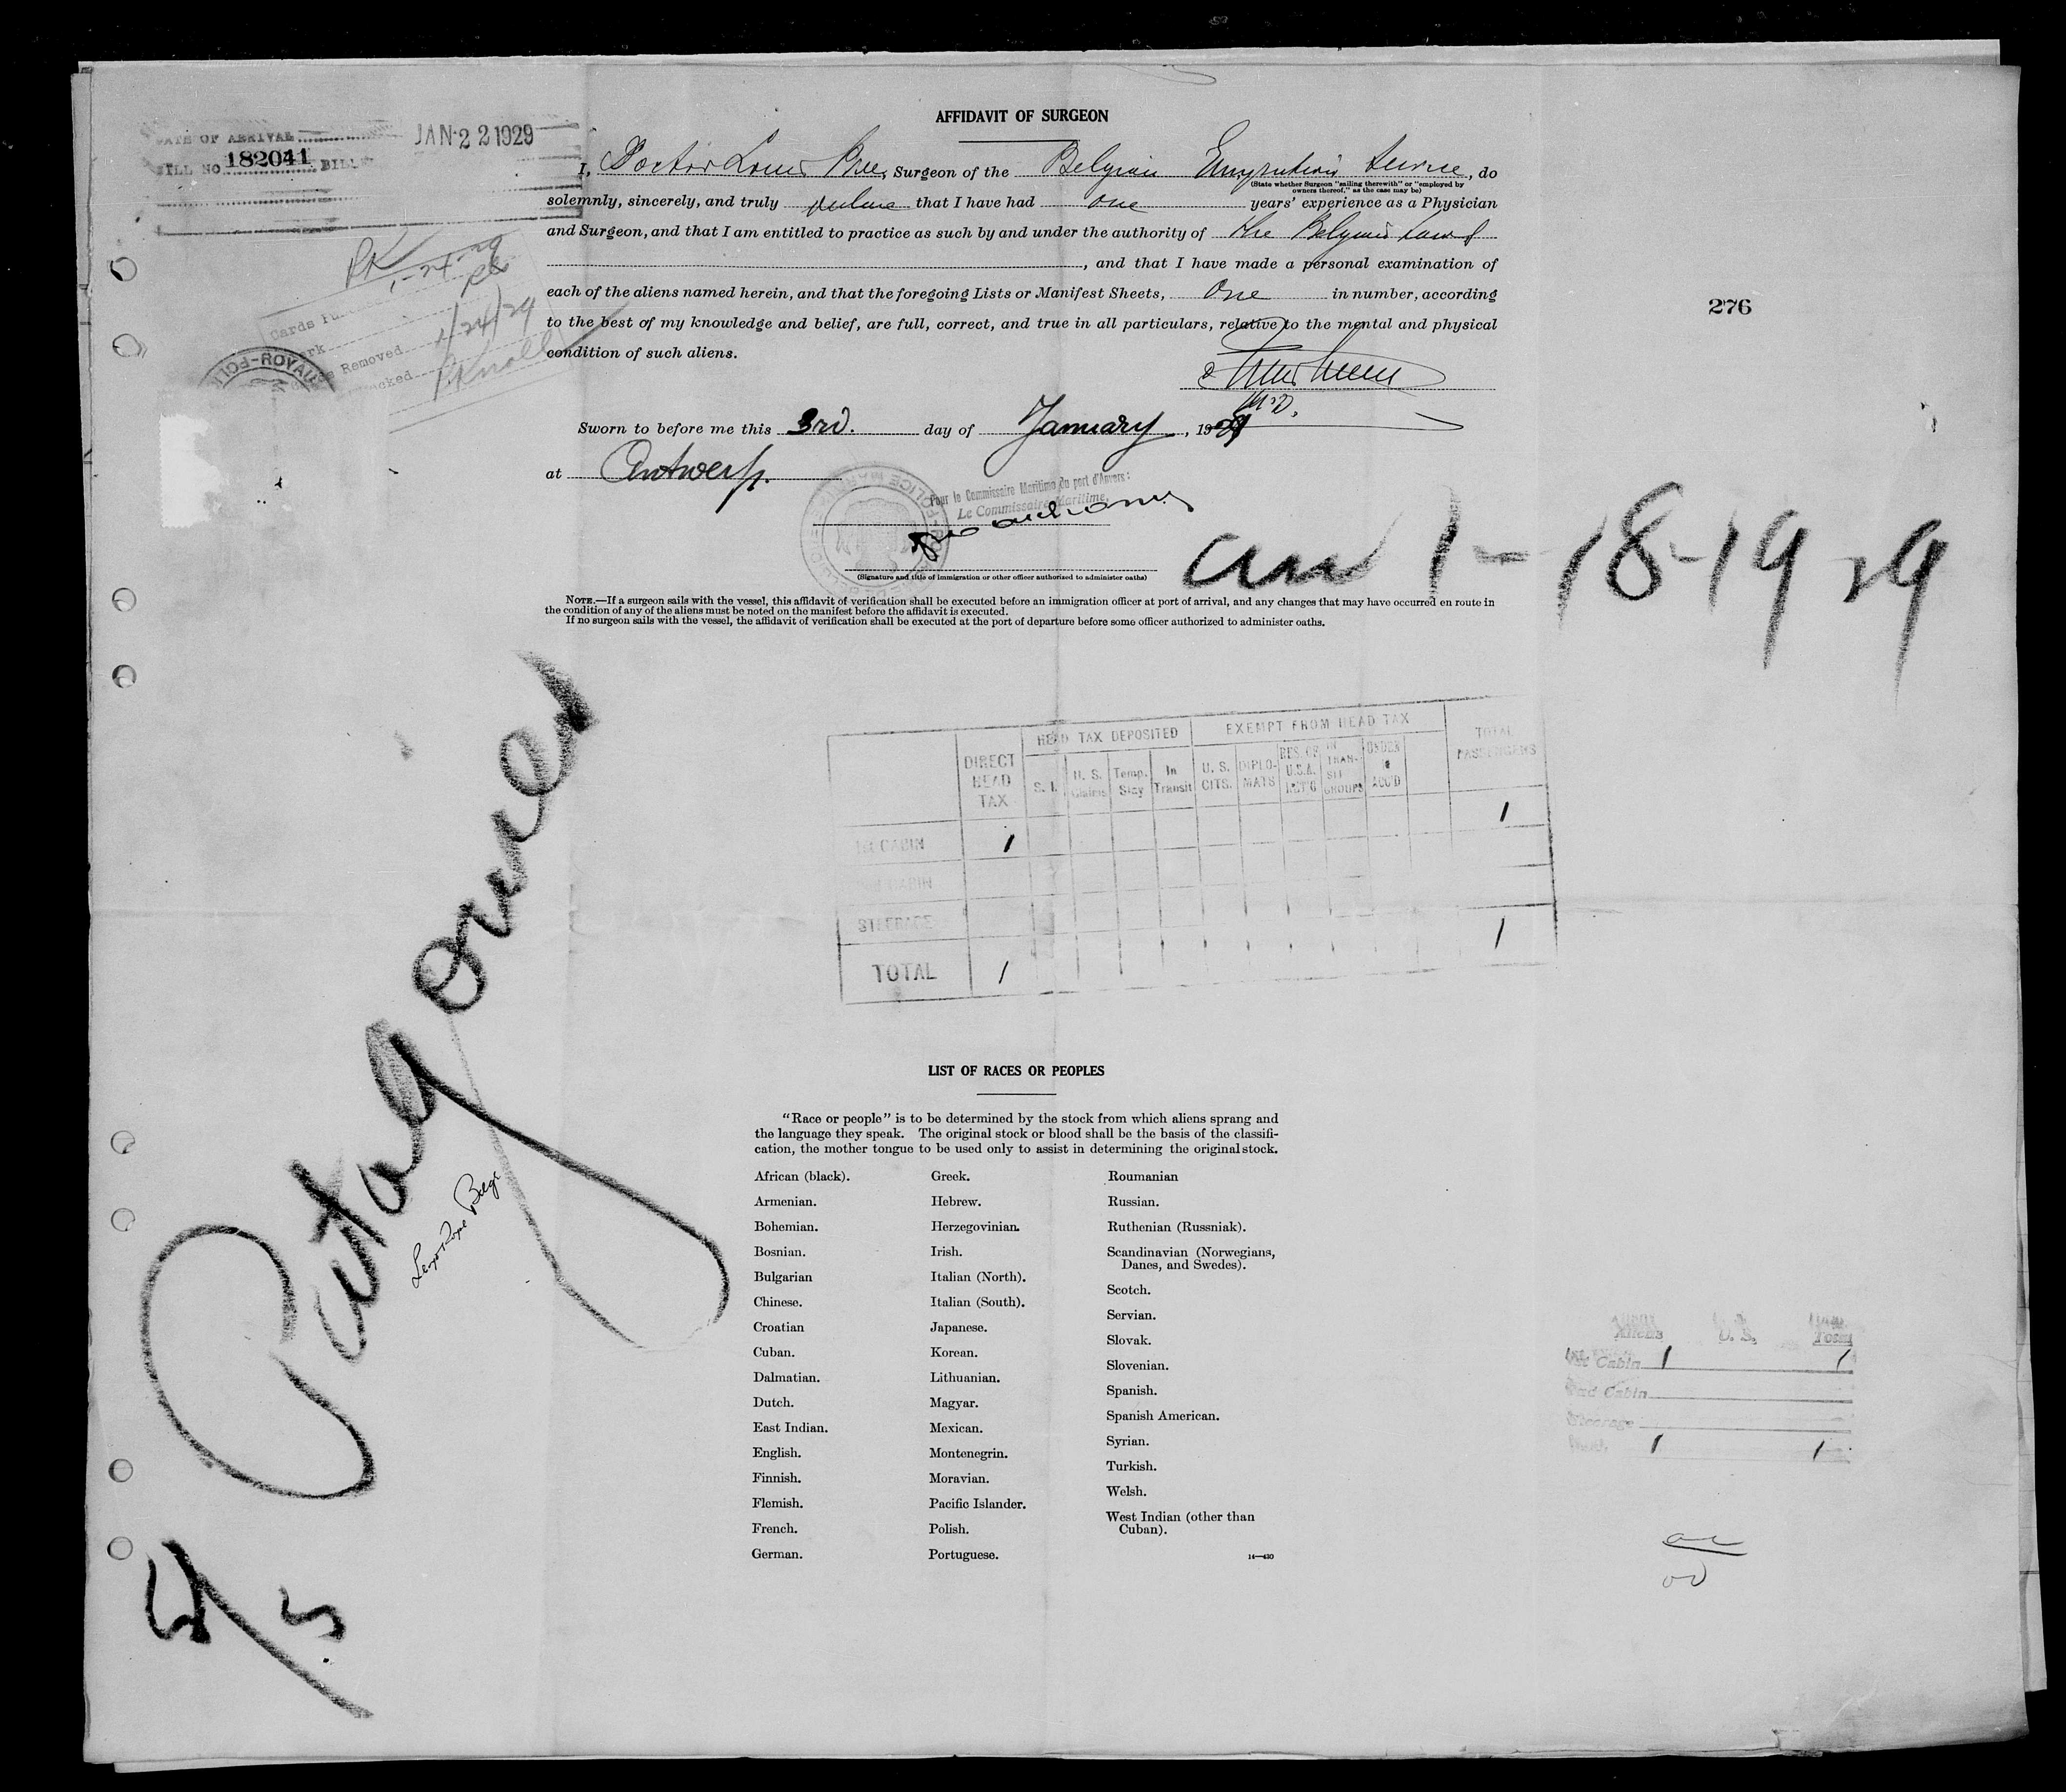 AFFIDAVIT OF SURGEON
DATE OF ARRIVAL JAN 22 1929
BILL NO. 182041 BILL
I, Doctor Louis, Surgeon of the Belgian Emigration Service, do
(State whether Surgeon "sailing therewith" or "employed by
owners thereof," as the case may be)
solemnly, sincerely, and truly declare that I have had one years' experience as a Physician
and Surgeon, and that I am entitled to practice as such by and under the authority of the Belgian Law
, and that I have made a personal examination of
each of the aliens named herein, and that the foregoing Lists or Manifest Sheets, One in number, according
to the best of my knowledge and belief, are full, correct, and true in all particulars, relative to the mental and physical
condition of such aliens.
276
M.D.
Removed 1/24/29
Sworn to before me this 3rd. day of January, 1929
at Antwerp.
Pour le Commissaire Maritime du port d'Anvers:
Le Commissaire Maritime,
(Signature and title of immigration or other officer authorized to administer oaths)
1-18-1929
NOTE.—If a surgeon sails with the vessel, this affidavit of verification shall be executed before an immigration officer at port of arrival, and any changes that may have occurred en route in
the condition of any of the aliens must be noted on the manifest before the affidavit is executed.
If no surgeon sails with the vessel, the affidavit of verification shall be executed at the port of departure before some officer authorized to administer oaths.
HEAD TAX DEPOSITED EXEMPT FROM HEAD TAX TOTAL PASSENGERS
DIRECT HEAD TAX S. I. U. S. Claims Temp. Stay In Transit U. S. CITS. DIPLO-MATS RES. OF U.S.A. RET'G IN TRAN-SIT GROUPS UNDER 16 ACC'D
1
CABIN 1
CABIN
STEERAGE
1
TOTAL 1
LIST OF RACES OR PEOPLES
"Race or people" is to be determined by the stock from which aliens sprang and
the language they speak. The original stock or blood shall be the basis of the classifi-
cation, the mother tongue to be used only to assist in determining the original stock.
African (black).
Armenian.
Bohemian.
Bosnian.
Bulgarian
Chinese.
Croatian
Cuban.
Dalmatian.
Dutch.
East Indian.
English.
Finnish.
Flemish.
French.
German.
Greek.
Hebrew.
Herzegovinian.
Irish.
Italian (North).
Italian (South).
Japanese.
Korean.
Lithuanian.
Magyar.
Mexican.
Montenegrin.
Moravian.
Pacific Islander.
Polish.
Portuguese.
Roumanian
Russian.
Ruthenian (Russniak).
Scandinavian (Norwegians,
Danes, and Swedes).
Scotch.
Servian.
Slovak.
Slovenian.
Spanish.
Spanish American.
Syrian.
Turkish.
Welsh.
West Indian (other than
Cuban).
14—430
Aliens U. S. Total
Cabin 1 1
2nd Cabin
Steerage
1 1
S/S